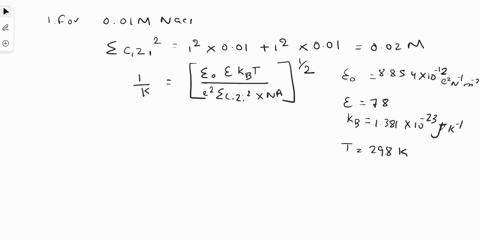 1. For 0.01M NaCl
Σ Cᵢ Zᵢ² = 1² × 0.01 + 1² × 0.01 = 0.02 M
1/K = [ε₀ ε k_B T / e² Σ Cᵢ Zᵢ² × NA]^1/2
ε₀ = 8.854 × 10⁻¹² C² N⁻¹ m⁻²
ε = 78
k_B = 1.381 × 10⁻²³ J K⁻¹
T = 298 K